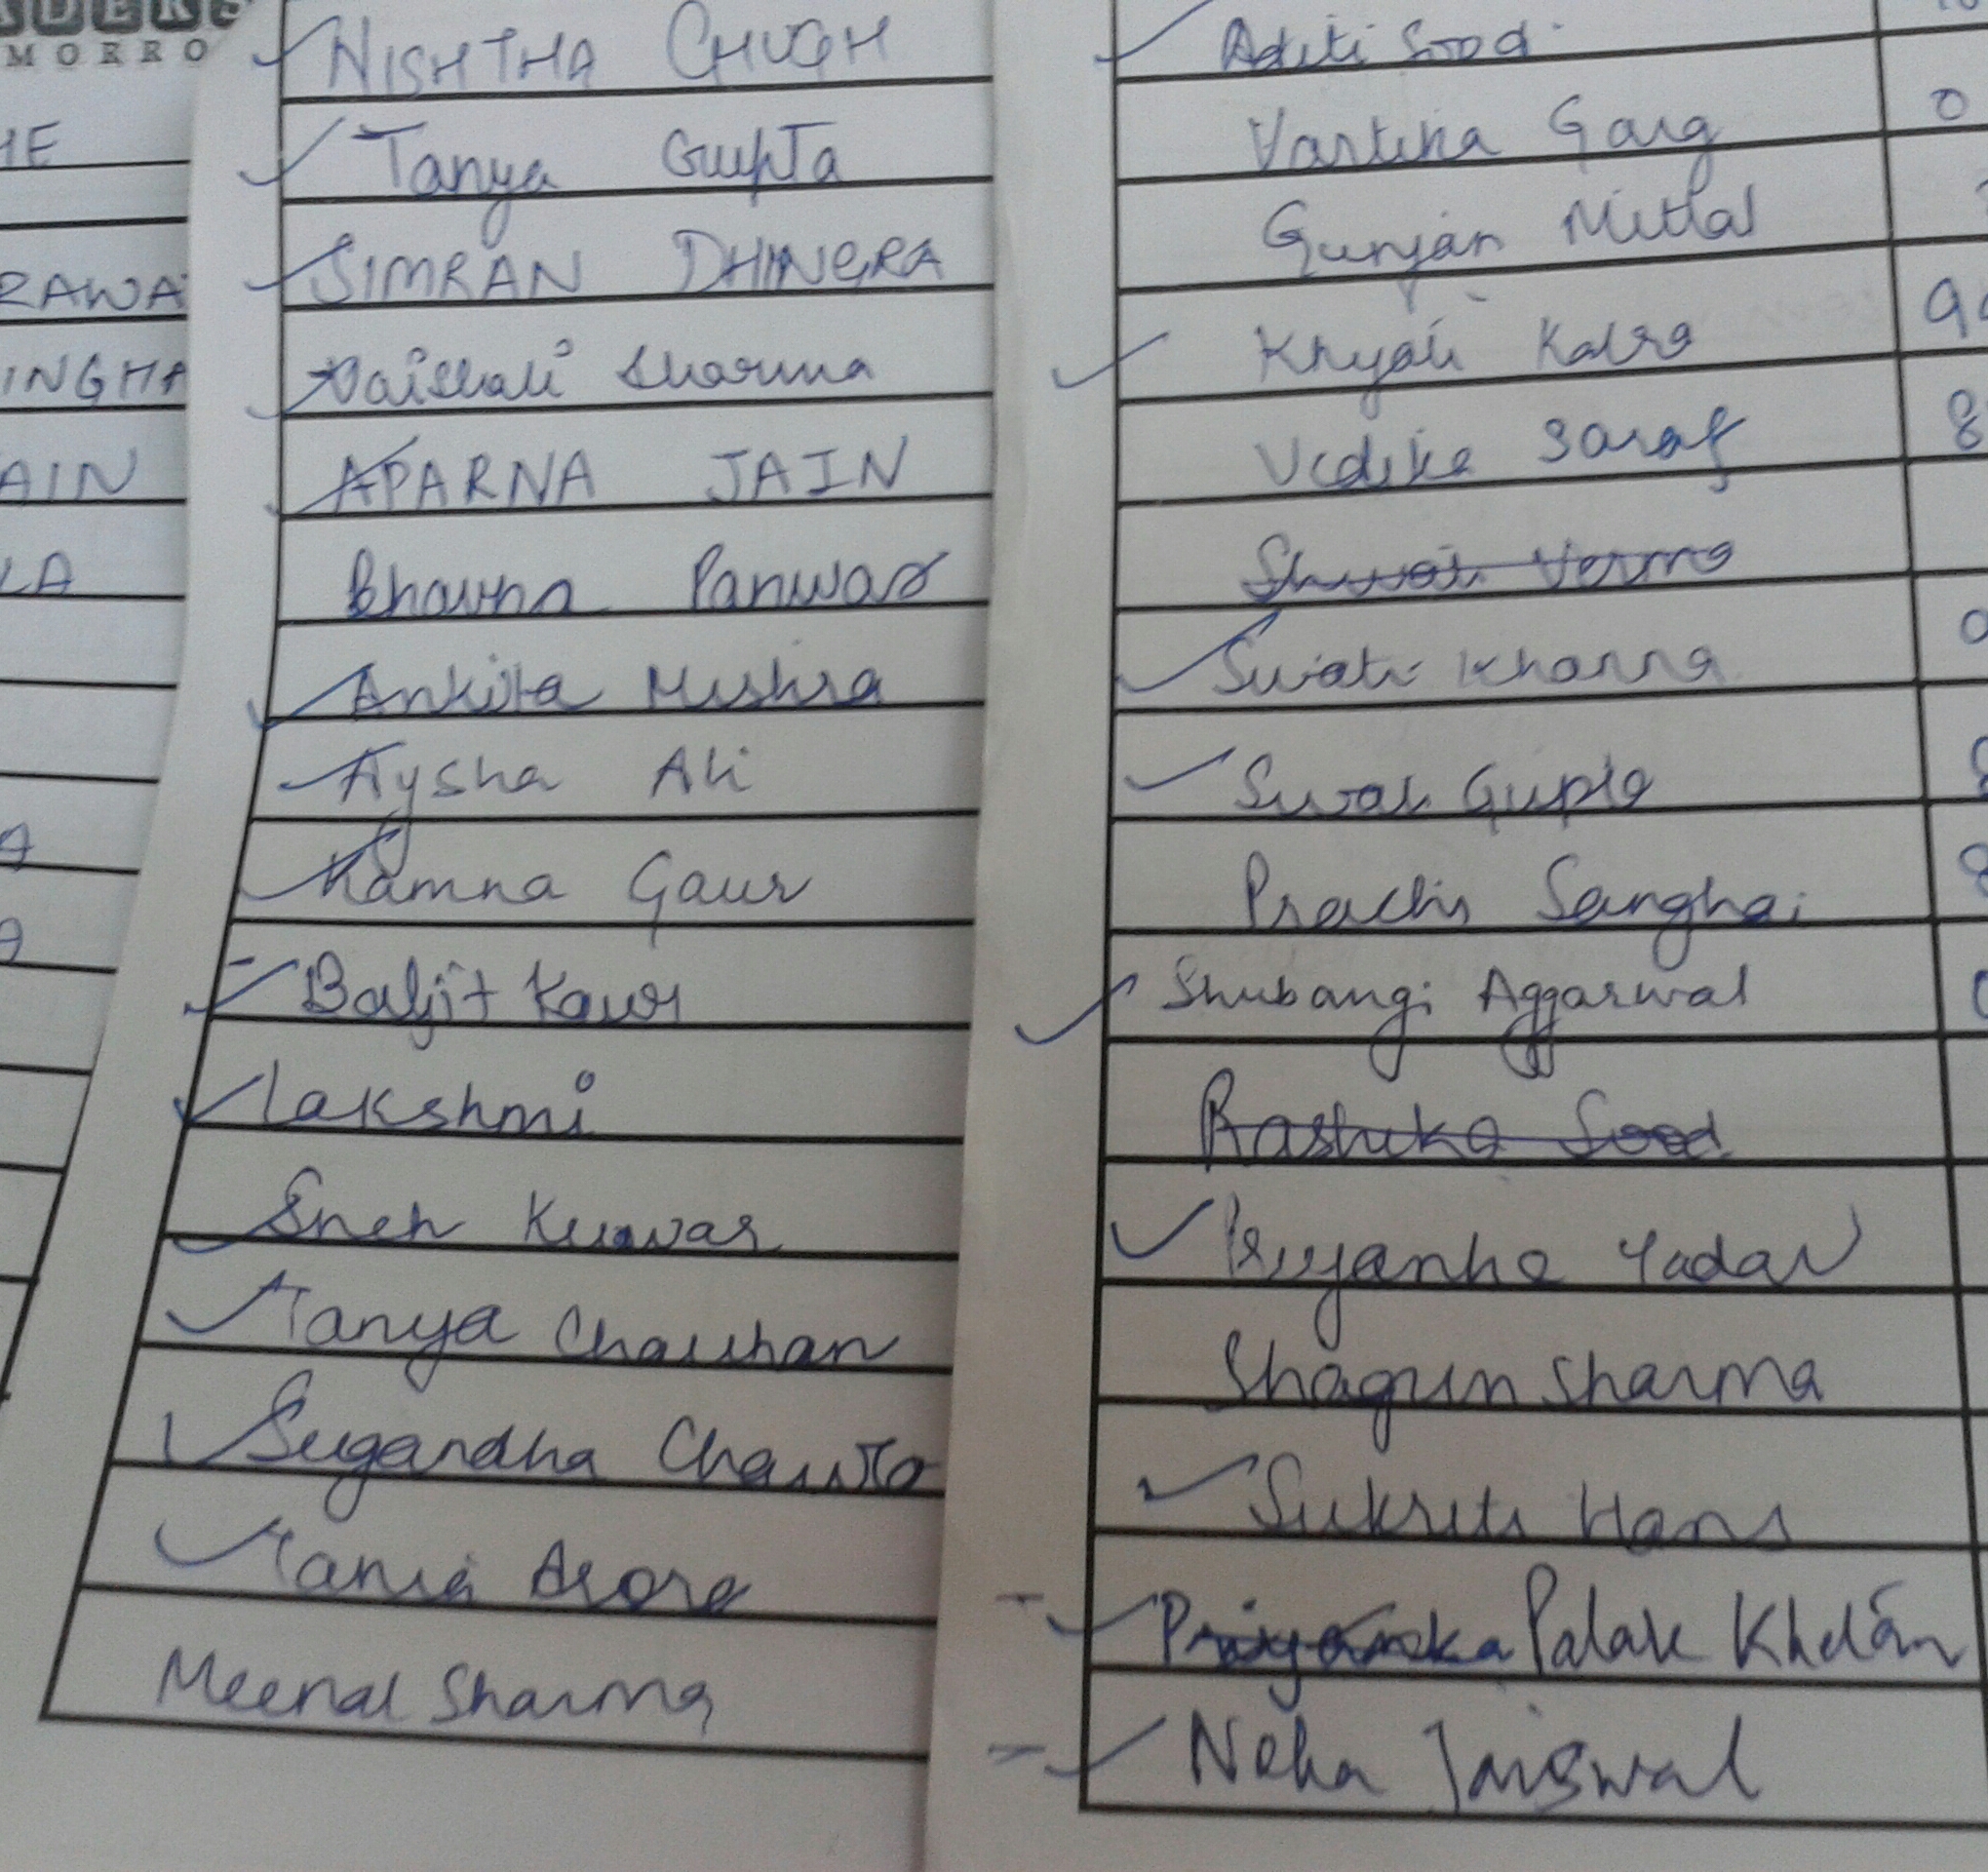 MORRO
RAWA
INGHA
AIN
LA
NISHTHA CHUGH
Tanya Gupta
SIMRAN DHINGRA
Vaishali Sharma
APARNA JAIN
Bhavna Panwar
Ankita Mishra
Aysha Ali
Kamna Gaur
Baljit Kaur
Lakshmi
Sneh Kuwar
Tanya Chauhan
Sugandha Chawla
Tania Arora
Meenal Sharma
Aditi Sood
Vartika Garg
Gunjan Mittal
Khyati Kalra
Vedika Saraf
Verma
Swati Khanna
Swati Gupta
Prachi Sanghai
Shubangi Aggarwal
Rashika Sood
Priyanka Yadav
Shagun Sharma
Sukriti Hans
Priyanka Palak Khetan
Neha Jaiswal